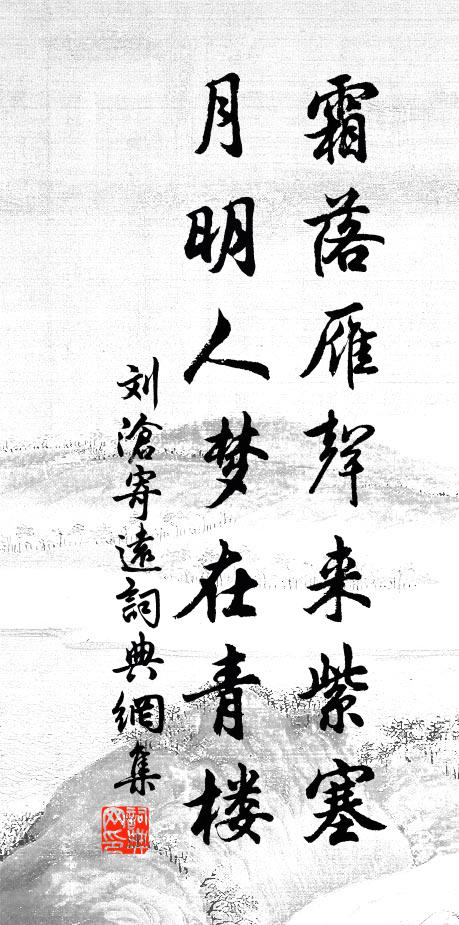 霜落雁聲来紫塞
月明人梦在青楼
刘滄寄遠詞典網集